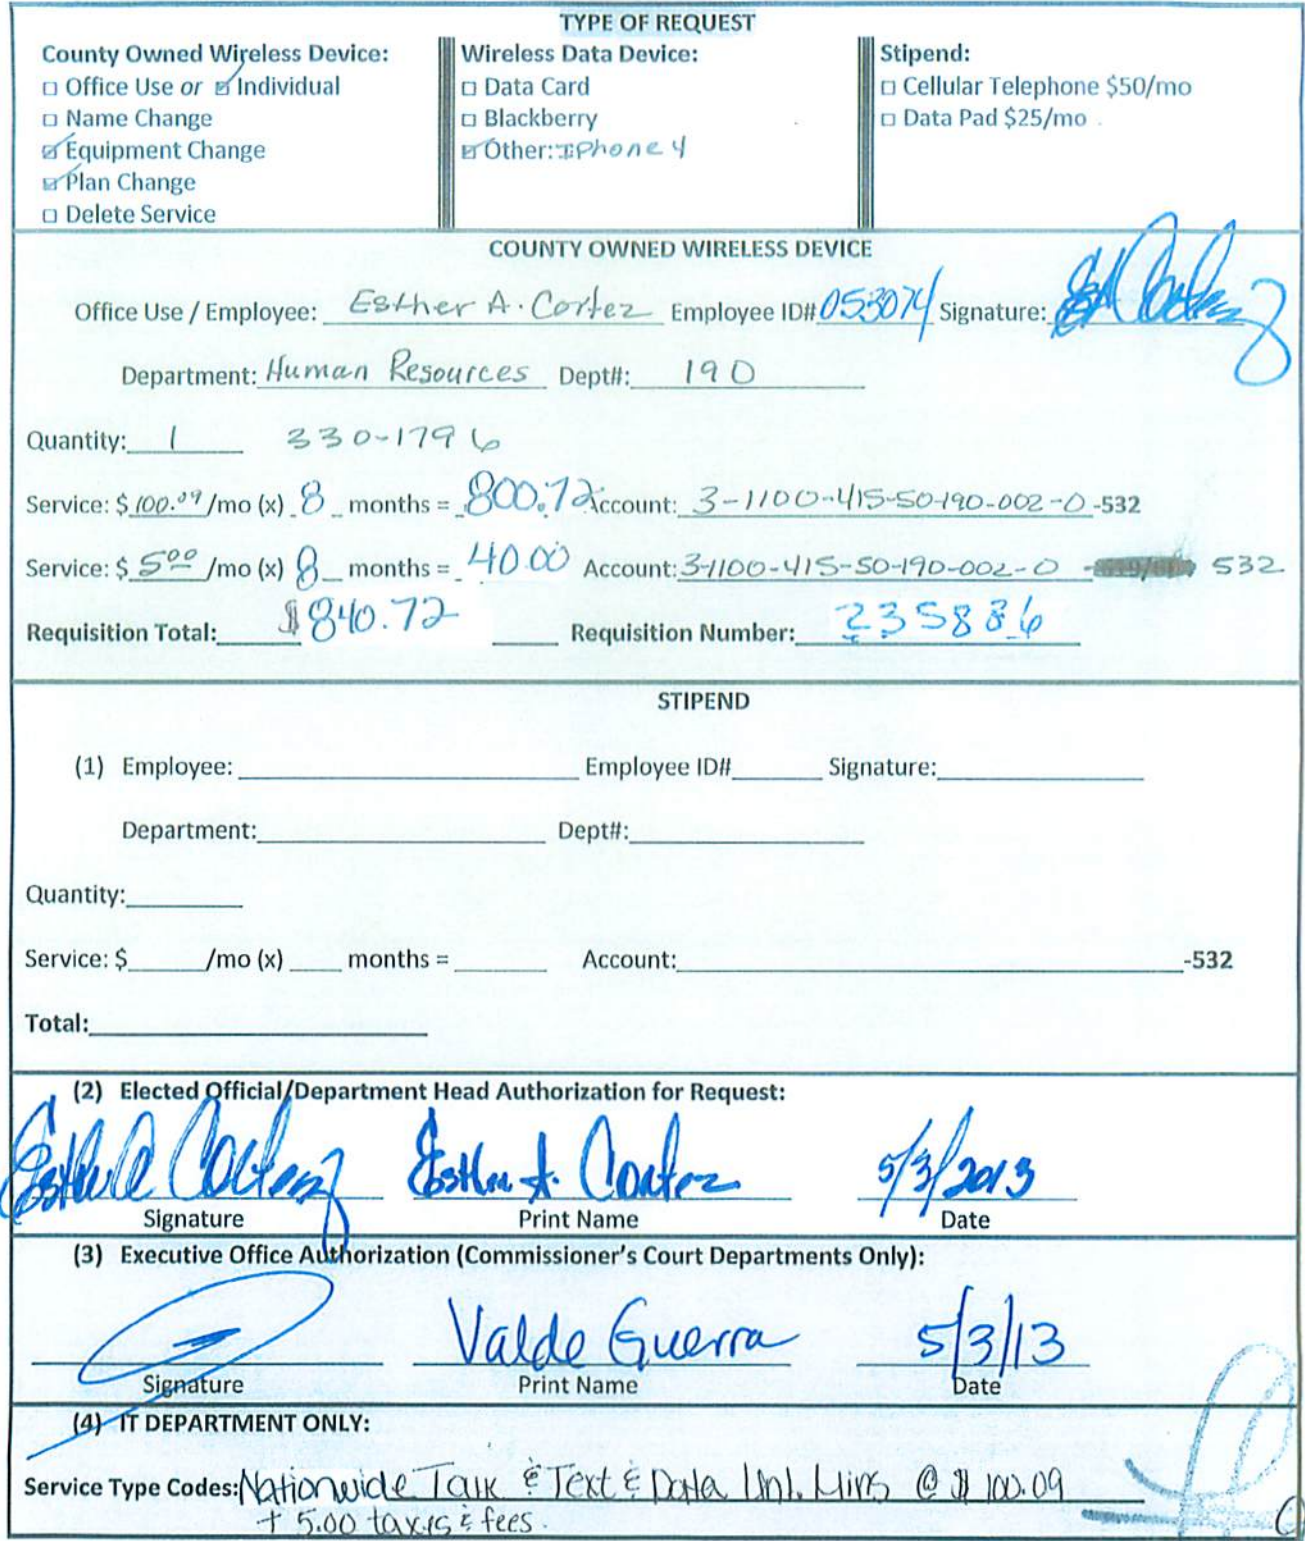 TYPE OF REQUEST
County Owned Wireless Device:
☐ Office Use or ☑ Individual
☐ Name Change
☑ Equipment Change
☑ Plan Change
☐ Delete Service
Wireless Data Device:
☐ Data Card
☐ Blackberry
☑ Other: IPhone 4
Stipend:
☐ Cellular Telephone $50/mo
☐ Data Pad $25/mo
COUNTY OWNED WIRELESS DEVICE
Office Use / Employee: Esther A. Cortez Employee ID# 053074 Signature:
Department: Human Resources Dept#: 190
Quantity: 1 330-1796
Service: $ 100.09 /mo (x) 8 months = 800.72 Account: 3-1100-415-50-190-002-0 -532
Service: $ 5.00 /mo (x) 8 months = 40.00 Account: 3-1100-415-50-190-002-0 532
Requisition Total: $840.72 Requisition Number: 235886
STIPEND
(1) Employee: Employee ID# Signature:
Department: Dept#:
Quantity:
Service: $ /mo (x) months = Account: -532
Total:
(2) Elected Official/Department Head Authorization for Request:
Esther A Cortez Esther A. Cortez 5/3/2013
Signature Print Name Date
(3) Executive Office Authorization (Commissioner's Court Departments Only):
Valde Guerra 5/3/13
Signature Print Name Date
(4) IT DEPARTMENT ONLY:
Service Type Codes: Nationwide Talk & Text & Data Unl. Mins @ $100.09
+ 5.00 taxes & fees.